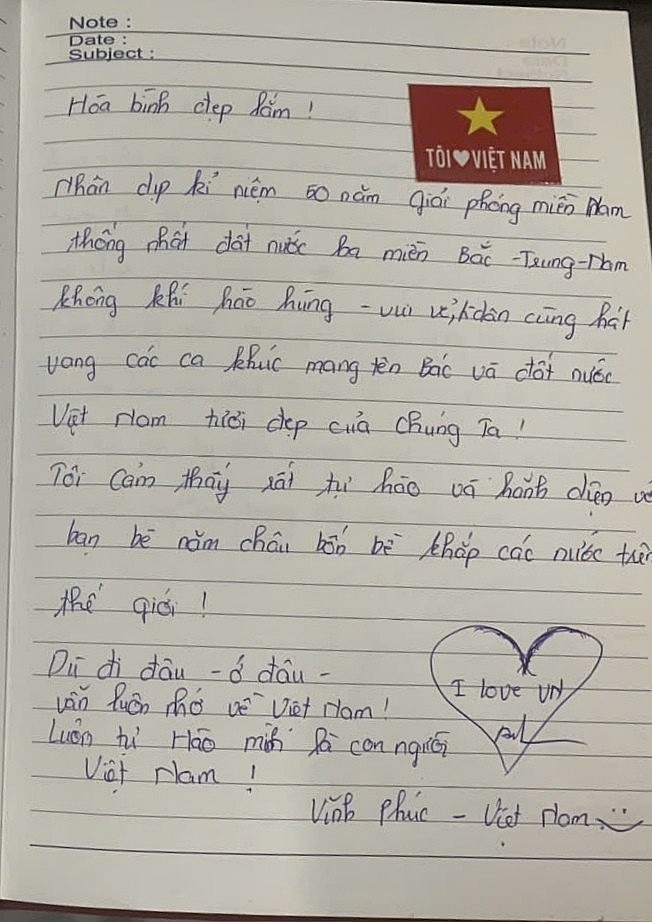 Note :
Date :
Subject :
Hòa bình đẹp lắm !
TÔI ♥ VIỆT NAM
Nhân dịp kỉ niệm 50 năm giải phóng miền Nam
thống nhất đất nước ba miền Bắc - Trung - Nam
không khí hào hùng - vui vẻ, dân cùng hát
vang các ca khúc mang tên Bác và đất nước
Việt Nam tươi đẹp của Chúng Ta !
Tôi Cảm thấy rất tự hào và hãnh diện về
bạn bè năm châu bốn bể khắp các nước trên
thế giới !
Dù đi đâu - ở đâu -
vẫn luôn nhớ về Việt Nam !
Luôn tự Hào mình là con người
Việt Nam !
I love VN
Vĩnh Phúc - Việt Nam